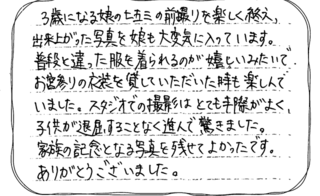 3歳になる娘の七五三の前撮りを楽しく終え、
出来上がった写真を娘も大変気に入っています。
普段と違った服を着られるのが嬉しいみたいで
お宮参りの衣装を貸していただいた時も楽しんで
いました。スタジオでの撮影はとても手際がよく、
子供が退屈することなく進んで驚きました。
家族の記念となる写真を残せてよかったです。
ありがとうございました。